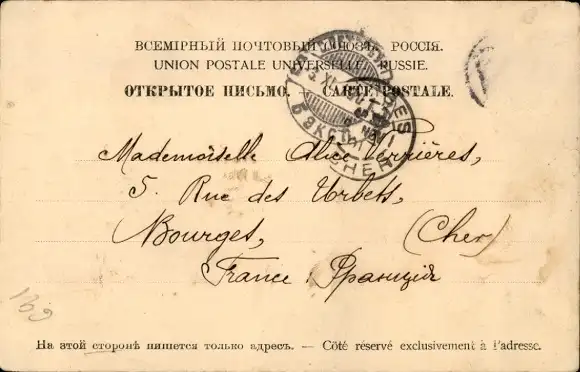 ВСЕМІРНЫЙ ПОЧТОВЫЙ СОЮЗЪ. РОССІЯ.
UNION POSTALE UNIVERSELLE. RUSSIE.
ОТКРЫТОЕ ПИСЬМО. — CARTE POSTALE.
Mademoiselle Alice Verrières,
5. Rue des Urbets,
Bourges, (Cher)
France. Франція
На этой сторонѣ пишется только адресъ. — Côté réservé exclusivement à l'adresse.